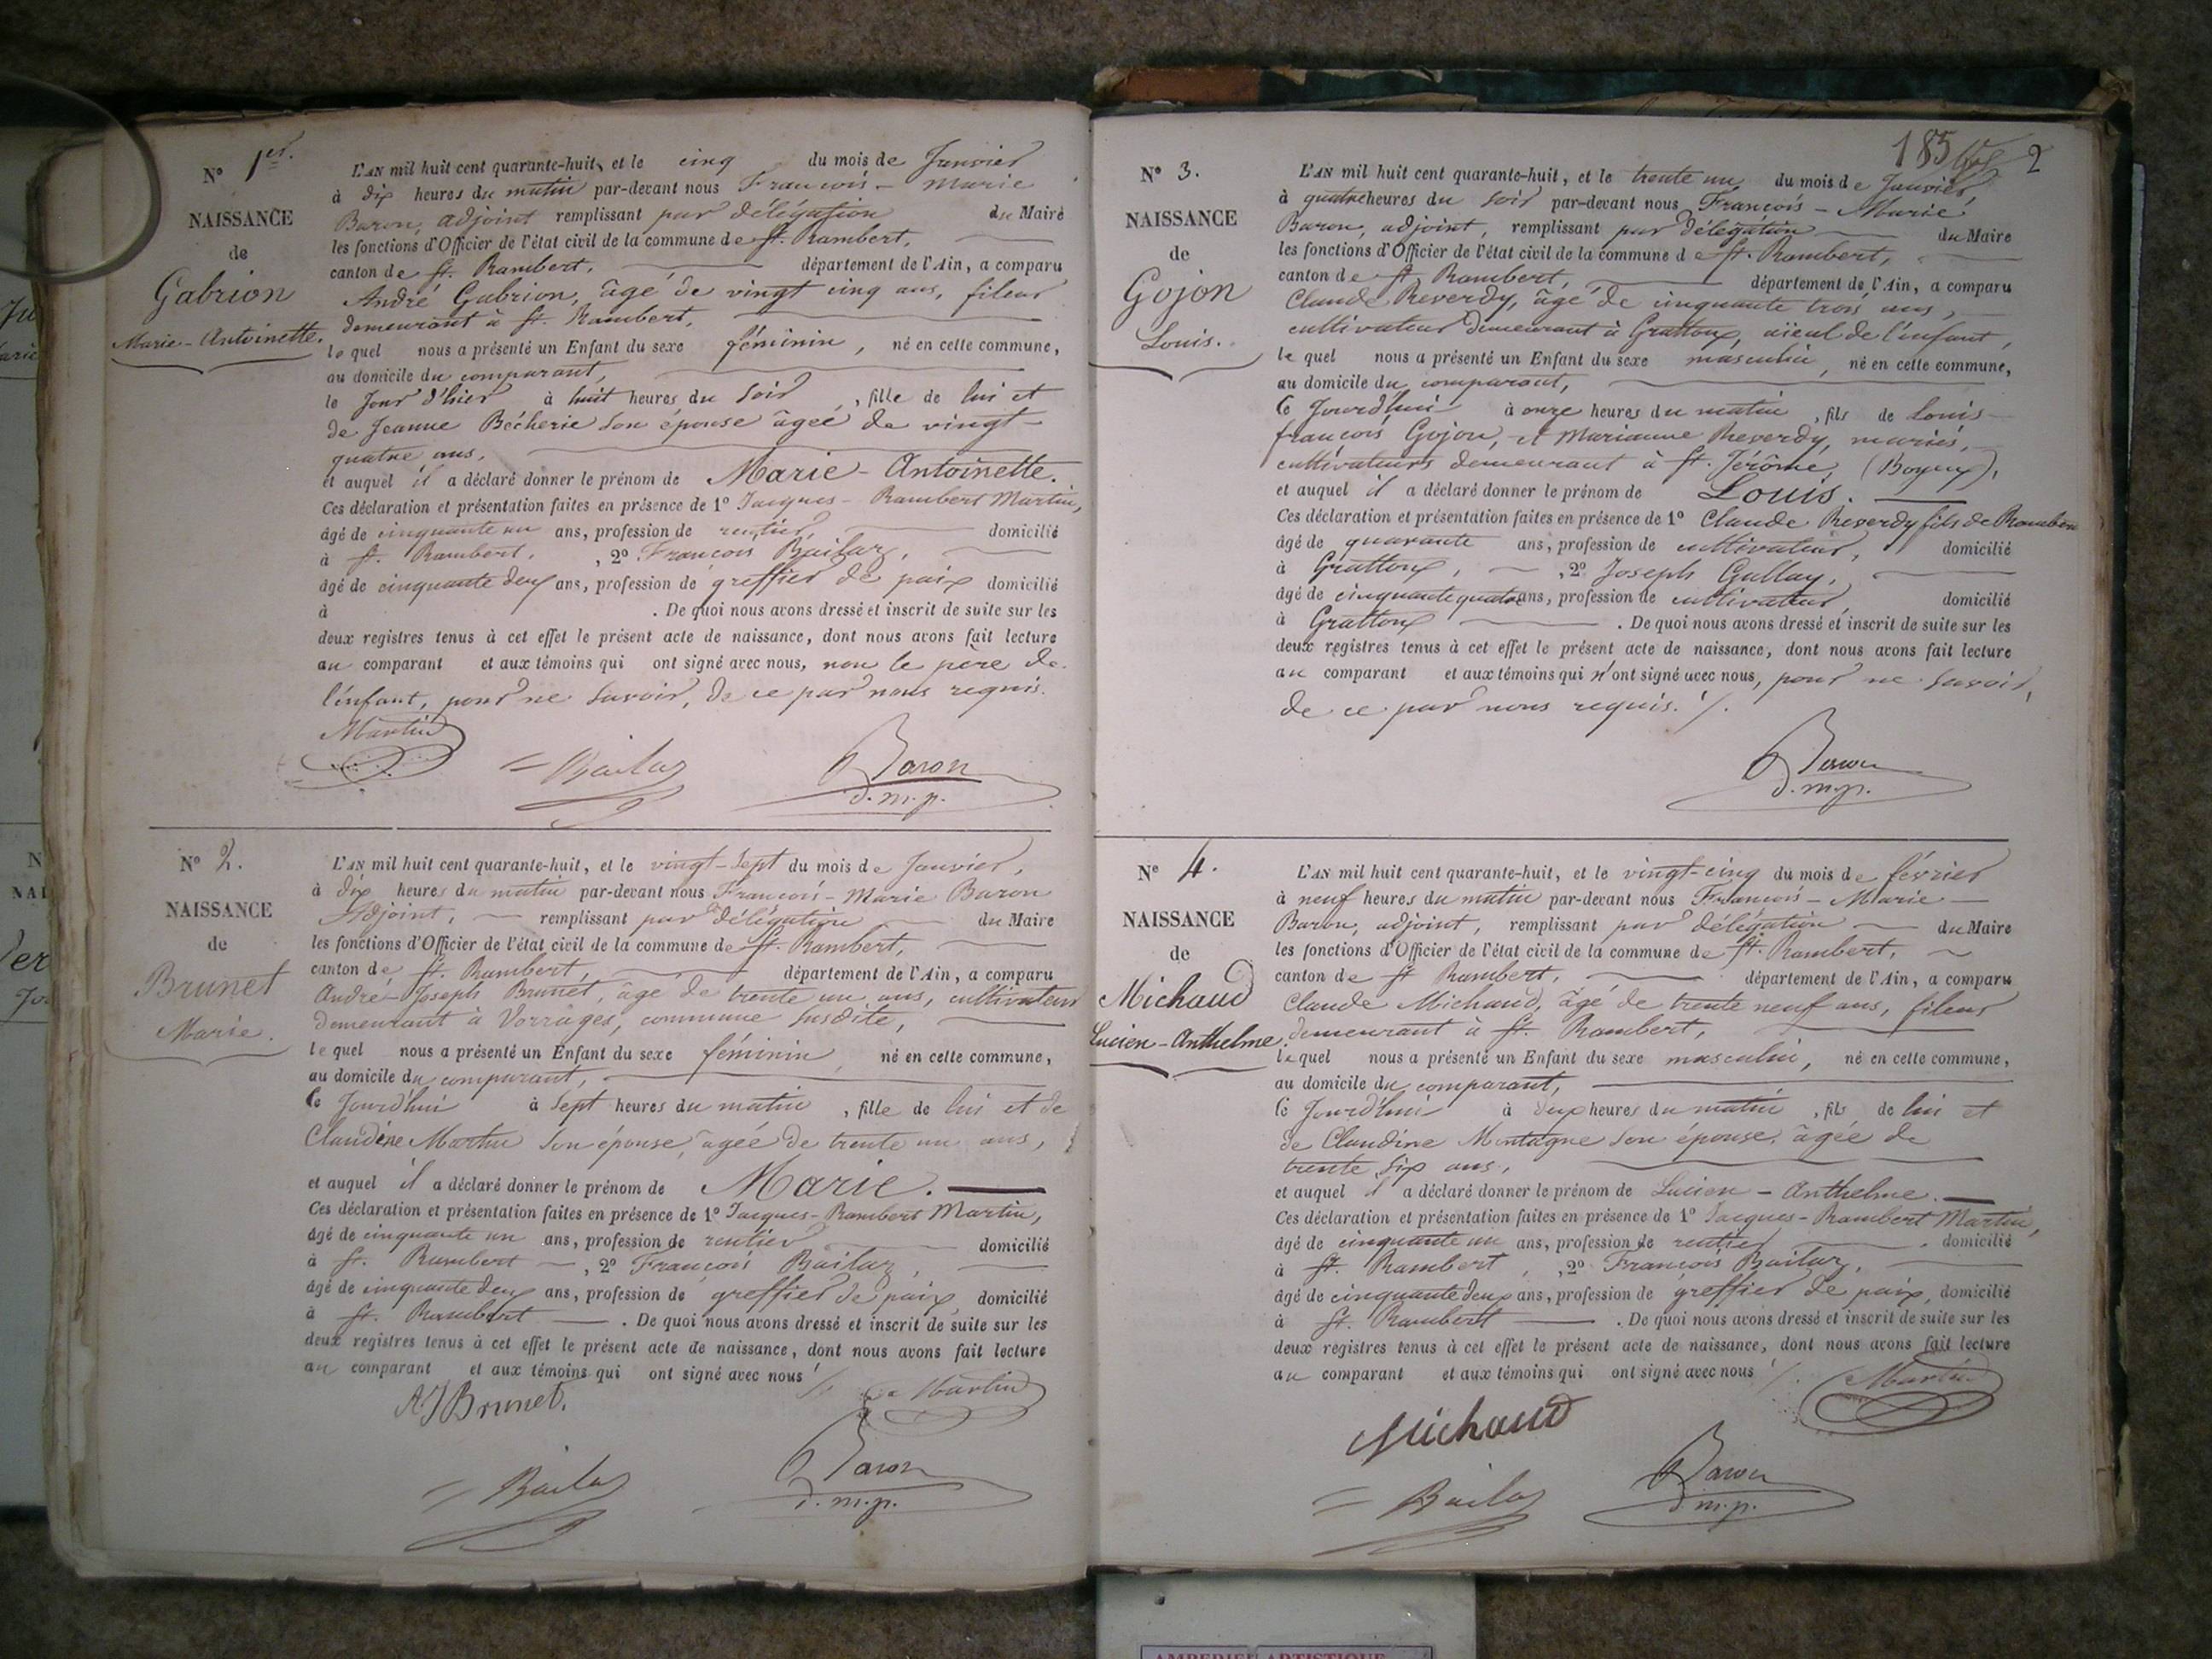 N° 1er.
NAISSANCE
de
Gabrion
Marie-Antoinette.
L'AN mil huit cent quarante-huit, et le cinq du mois de Janvier
à dix heures du matin par-devant nous François-Marie
Baron, adjoint remplissant par délégation du Maire
les fonctions d'Officier de l'état civil de la commune de St. Rambert,
canton de St. Rambert, département de l'Ain, a comparu
André Gabrion, âgé de vingt cinq ans, fileur
demeurant à St. Rambert,
le quel nous a présenté un Enfant du sexe féminin, né en cette commune,
au domicile du comparant,
le Jour d'hier à huit heures du soir, fille de lui et
de Jeanne Bécherie son épouse âgée de vingt-
quatre ans,
et auquel il a déclaré donner le prénom de Marie-Antoinette.
Ces déclaration et présentation faites en présence de 1° Jacques-Rambert Martin,
âgé de cinquante un ans, profession de rentier, domicilié
à St. Rambert, 2° François Bailaz,
âgé de cinquante deux ans, profession de greffier de paix domicilié
à . De quoi nous avons dressé et inscrit de suite sur les
deux registres tenus à cet effet le présent acte de naissance, dont nous avons fait lecture
au comparant et aux témoins qui ont signé avec nous, non le père de
l'enfant, pour ne savoir, de ce par nous requis.
Martin
Bailaz
Baron
d.m.p.
N° 2.
NAISSANCE
de
Brunet
Marie.
L'AN mil huit cent quarante-huit, et le vingt-sept du mois de Janvier,
à dix heures du matin par-devant nous François-Marie Baron
Adjoint, remplissant par délégation du Maire
les fonctions d'Officier de l'état civil de la commune de St. Rambert,
canton de St. Rambert, département de l'Ain, a comparu
André-Joseph Brunet, âgé de trente un ans, cultivateur
demeurant à Vorrages, commune susdite,
le quel nous a présenté un Enfant du sexe féminin, né en cette commune,
au domicile du comparant,
le Jourd'hui à sept heures du matin, fille de lui et de
Claudine Martin son épouse, âgée de trente un ans,
et auquel il a déclaré donner le prénom de Marie.
Ces déclaration et présentation faites en présence de 1° Jacques-Rambert Martin,
âgé de cinquante un ans, profession de rentier domicilié
à St. Rambert, 2° François Bailaz,
âgé de cinquante deux ans, profession de greffier de paix, domicilié
à St. Rambert . De quoi nous avons dressé et inscrit de suite sur les
deux registres tenus à cet effet le présent acte de naissance, dont nous avons fait lecture
au comparant et aux témoins qui ont signé avec nous
AJBrunet.
Martin
Bailaz
Baron
d.m.p.
185
2
N° 3.
NAISSANCE
de
Gojon
Louis.
L'AN mil huit cent quarante-huit, et le trente un du mois de Janvier
à quatre heures du soir par-devant nous François-Marie
Baron, adjoint, remplissant par délégation du Maire
les fonctions d'Officier de l'état civil de la commune de St. Rambert,
canton de St. Rambert, département de l'Ain, a comparu
Claude Reverdy, âgé de cinquante trois ans,
cultivateur demeurant à Grattoux, aïeul de l'enfant,
le quel nous a présenté un Enfant du sexe masculin, né en cette commune,
au domicile du comparant,
le Jourd'hui à onze heures du matin, fils de Louis
françois Gojon, et Marianne Reverdy, mariés,
cultivateurs demeurant à St. Jérôme, (Boyeux),
et auquel il a déclaré donner le prénom de Louis.
Ces déclaration et présentation faites en présence de 1° Claude Reverdy fils de Rambert
âgé de quarante ans, profession de cultivateur, domicilié
à Grattoux, 2° Joseph Gullay,
âgé de cinquante quatre ans, profession de cultivateur domicilié
à Grattoux . De quoi nous avons dressé et inscrit de suite sur les
deux registres tenus à cet effet le présent acte de naissance, dont nous avons fait lecture
au comparant et aux témoins qui n'ont signé avec nous, pour ne savoir,
de ce par nous requis. /.
Baron
d.m.p.
N° 4.
NAISSANCE
de
Michaud
Lucien-Anthelme.
L'AN mil huit cent quarante-huit, et le vingt-cinq du mois de février
à neuf heures du matin par-devant nous François-Marie
Baron, adjoint, remplissant par délégation du Maire
les fonctions d'Officier de l'état civil de la commune de St. Rambert,
canton de St Rambert, département de l'Ain, a comparu
Claude Michaud, âgé de trente neuf ans, fileur
demeurant à St. Rambert,
le quel nous a présenté un Enfant du sexe masculin, né en cette commune,
au domicile du comparant,
le Jourd'hui à deux heures du matin, fils de lui et
de Claudine Montagne son épouse, âgée de
trente six ans,
et auquel il a déclaré donner le prénom de Lucien-Anthelme.
Ces déclaration et présentation faites en présence de 1° Jacques-Rambert Martin,
âgé de cinquante un ans, profession de rentier, domicilié
à St. Rambert, 2° François Bailaz,
âgé de cinquante deux ans, profession de greffier de paix, domicilié
à St. Rambert . De quoi nous avons dressé et inscrit de suite sur les
deux registres tenus à cet effet le présent acte de naissance, dont nous avons fait lecture
au comparant et aux témoins qui ont signé avec nous /.
Martin
Michaud
Bailaz
Baron
d.m.p.
AMBERIEU ARTISTIQUE